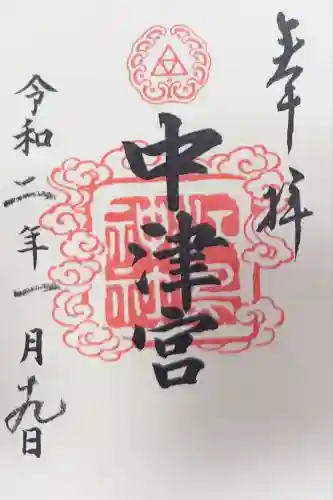 奉拝
中津宮
令和二年一月九日